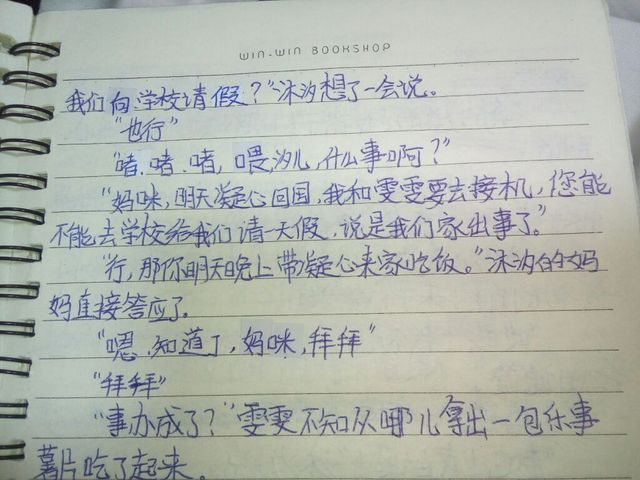 WIN.WIN BOOKSHOP
我们向学校请假？”沐汐想了一会说。
“也行”
“嘟.嘟.嘟，喂，汐儿，什么事啊？”
“妈咪，明天凝心回国，我和雯雯要去接机，您能
不能去学校给我们请一天假，说是我们家出事了。”
“行，那你明天晚上带凝心来家吃饭。”沐汐的妈
妈直接答应了。
“嗯.知道了，妈咪，拜拜”
“拜拜”
“事办成了？”雯雯不知从哪儿拿出一包乐事
薯片吃了起来。